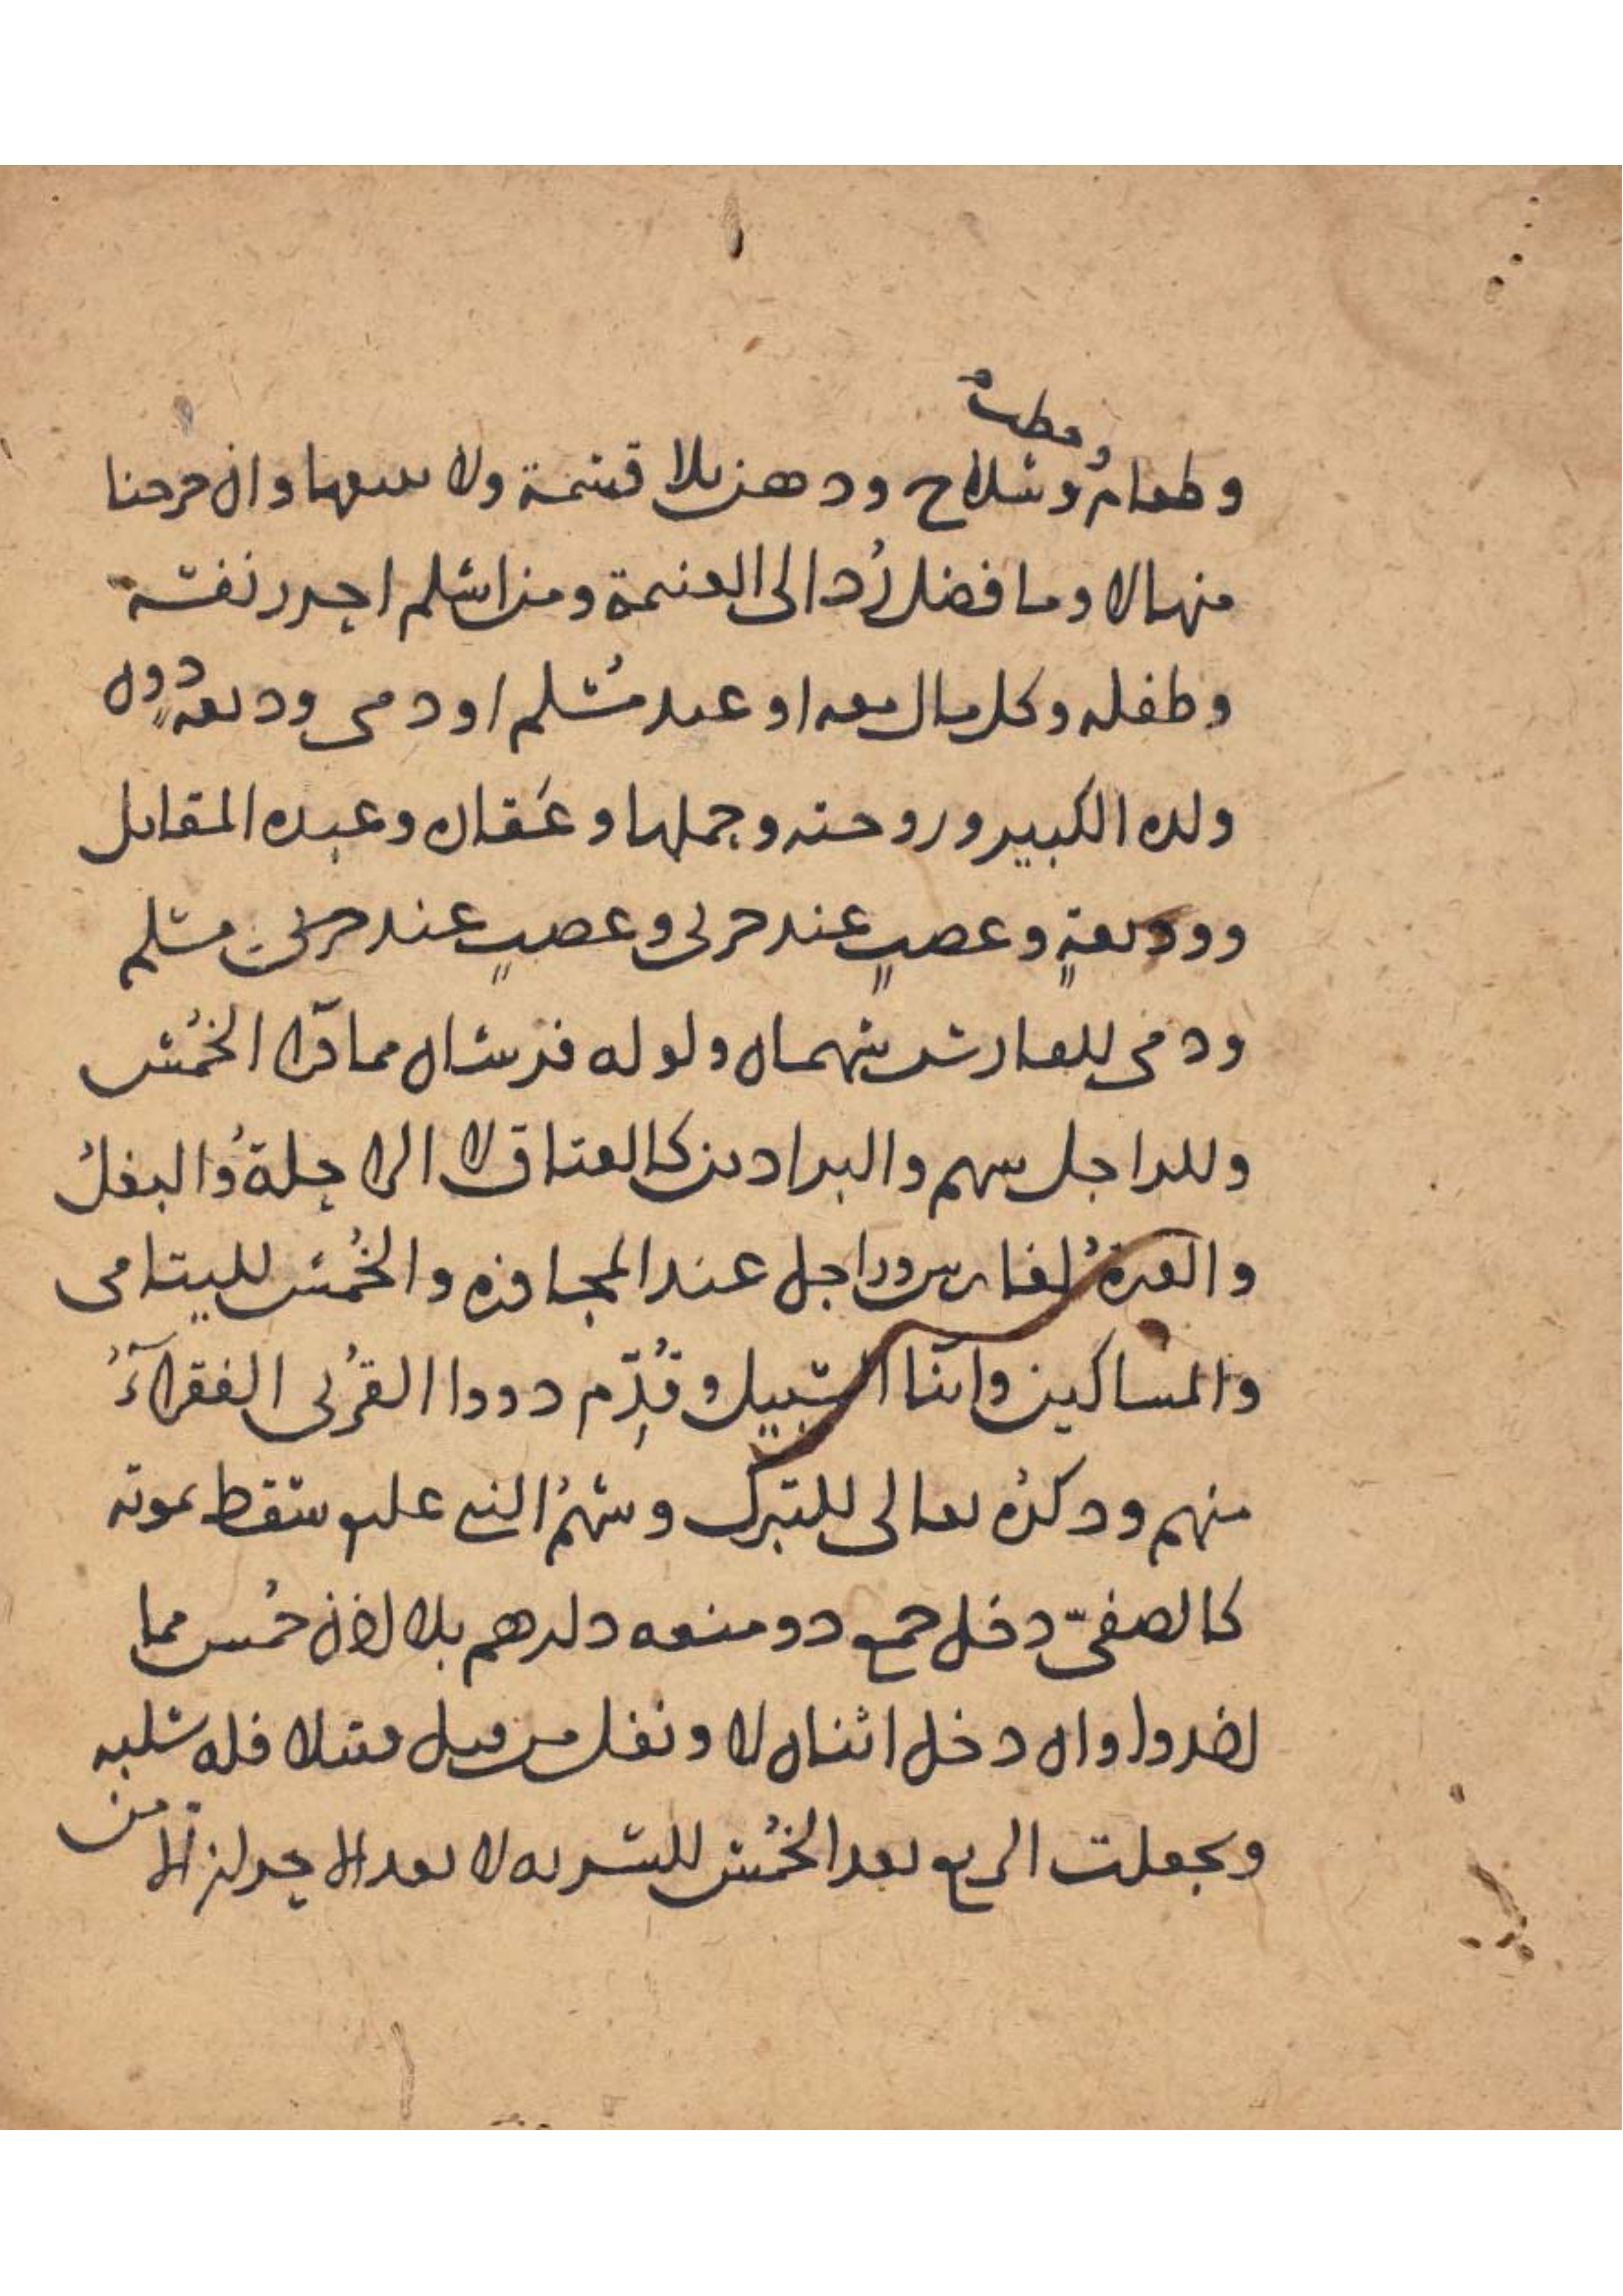 وحطب
وطعام وسلاح ودهن بلا قسمة ولا يبيعها وان خرجنا
منها لا وما فضل رُد الى الغنيمة ومن اسلم احرز نفسه
وطفله وكل مال معه او عند مُسلم او ذمى وديعةٍ دون
ولده الكبير وزوجته وحملها وعَقاره وعبده المقاتل
ووديعةٍ وغصبٍ عند حربى وغصبٍ عند حربى مسلم
وذمى للفارس سهمان ولو له فرسان مما ورا الخُمس
وللراجل سهم والبراذين كالعتاق لا الراحلةُ والبغلُ
والعبرةُ لفارس وراجل عند المجاوزه والخُمس لليتامى
والمساكين وابنا السبيل وقُدِّم ذووا القُربى الفقرآءُ
منهم وذكرُه تعالى للتبرك وسهمُ النبى عليه سقط بموته
كالصفىّ دخل جمع ذو منعه دارهم بلا اذن خُمس مما
اخذوا وان دخل اثنان لا ونفل من قتل قتيلا فله سلبه
وبجعلت الربع بعد الخُمس للسريه لا بعد الاحراز الا من